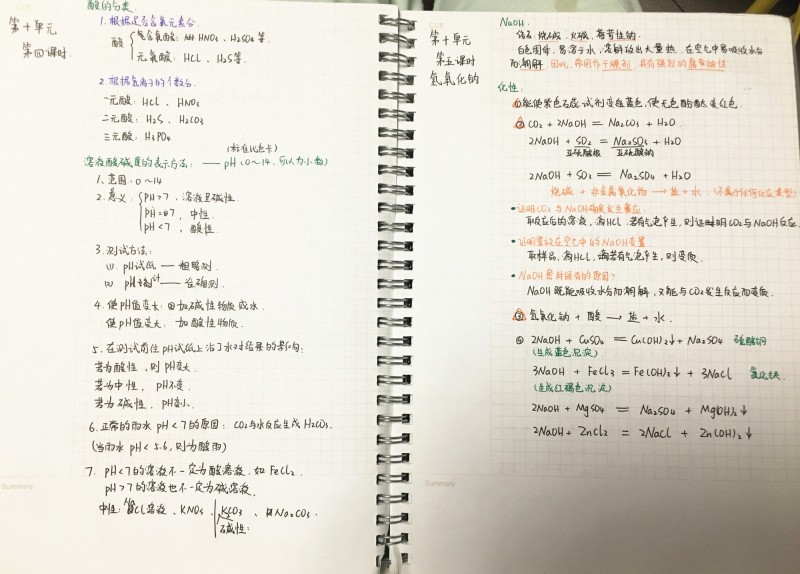 CUE
第十单元
第四课时.
酸的分类.
1. 根据是否含氧元素分.
酸
含氧酸: HNO₃、H₂SO₄等.
无氧酸: HCl、H₂S等.
2. 根据氢离子的个数分.
一元酸: HCl、HNO₃
二元酸: H₂S、H₂CO₃
三元酸: H₃PO₄
(标准比色卡)
溶液酸碱度的表示方法: —— pH (0~14, 可以为小数)
1、范围: 0~14
2. 意义: PH>7, 溶液呈碱性.
PH=7, 中性.
PH<7, 酸性.
3. 测试方法:
(1). pH试纸 —— 粗略测.
(2) pH计 —— 准确测.
4. 使pH值变大: 加碱性物质或水.
使pH值变大: 加酸性物质.
5. 在测试前往pH试纸上沾了水对结果的影响:
若为酸性, 则pH变大.
若为中性, pH不变.
若为碱性, pH变小.
6. 正常的雨水pH<7的原因: CO₂与水反应生成H₂CO₃.
(当雨水pH<5.6, 则为酸雨)
7. pH<7的溶液不一定为酸溶液. 如FeCl₂.
pH>7的溶液也不一定为碱溶液.
中性: NaCl溶液、KNO₃. K₂CO₃、Na₂CO₃.
碱性:
Summary
CUE
第十单元
第五课时
氢氧化钠
NaOH.
俗名: 烧碱、火碱、苛性钠.
白色固体, 易溶于水, 溶解放出大量热. 在空气中易吸收水分
而潮解. 因此, 常用作干燥剂. 具有强烈的腐蚀性
化性:
①能使紫色石蕊试剂变蓝色, 使无色酚酞变红色.
② CO₂ + 2NaOH = Na₂CO₃ + H₂O.
2NaOH + SO₂ = Na₂SO₃ + H₂O
亚硫酸钠
2NaOH + SO₃ = Na₂SO₄ + H₂O
烧碱 + 非金属氧化物 → 盐 + 水. (不属于任何反应类型)
• 证明CO₂与NaOH确实发生反应.
取反应后的溶液, 滴HCl, 若有气泡产生, 则证明CO₂与NaOH反应.
• 证明露放在空气中的NaOH变质.
取样品, 滴HCl, 若有气泡产生, 则变质.
• NaOH密封保存的原因?
NaOH既能吸收水分而潮解, 又能与CO₂发生反应而变质.
③ 氢氧化钠 + 酸 → 盐 + 水.
④ 2NaOH + CuSO₄ = Cu(OH)₂↓ + Na₂SO₄ 硫酸铜
(生成蓝色沉淀)
3NaOH + FeCl₃ = Fe(OH)₃↓ + 3NaCl 氯化铁
(生成红褐色沉淀)
2NaOH + MgSO₄ = Na₂SO₄ + Mg(OH)₂↓
2NaOH + ZnCl₂ = 2NaCl + Zn(OH)₂↓
Summary